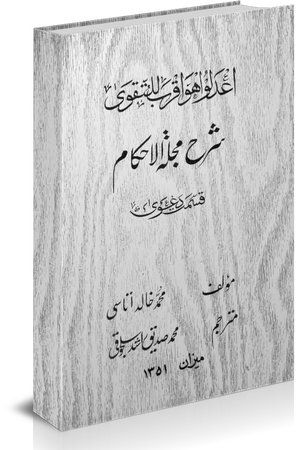 اعدلوا هو اقرب للتقوى
شرح مجلة الاحکام
قسمت دعوی
مؤلف
محمد خالد اتاسی
مترجم
محمد صدیق راشد سلجوقی
میزان ۱۳۵۱